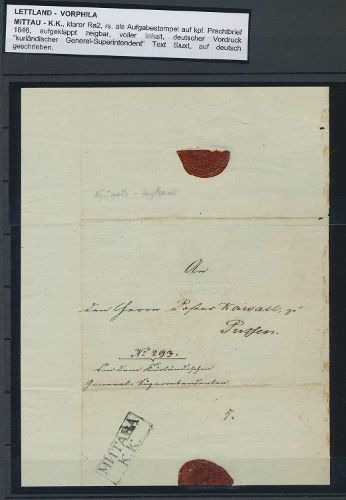 LETTLAND - VORPHILA
MITTAU - K.K., klarer Ra2, rs. als Aufgabestempel auf kpl. Prachtbrief
1846, aufgeklappt zeigbar, voller Inhalt, deutscher Vordruck
"kurländischer General-Superintendent" Text Siuxt, auf deutsch
geschrieben.
An
den Herrn Pastor Kawall, zu
Pussen.
No 293.
Von dem Kurländischen
General-Superintendenten
5.
K.K.